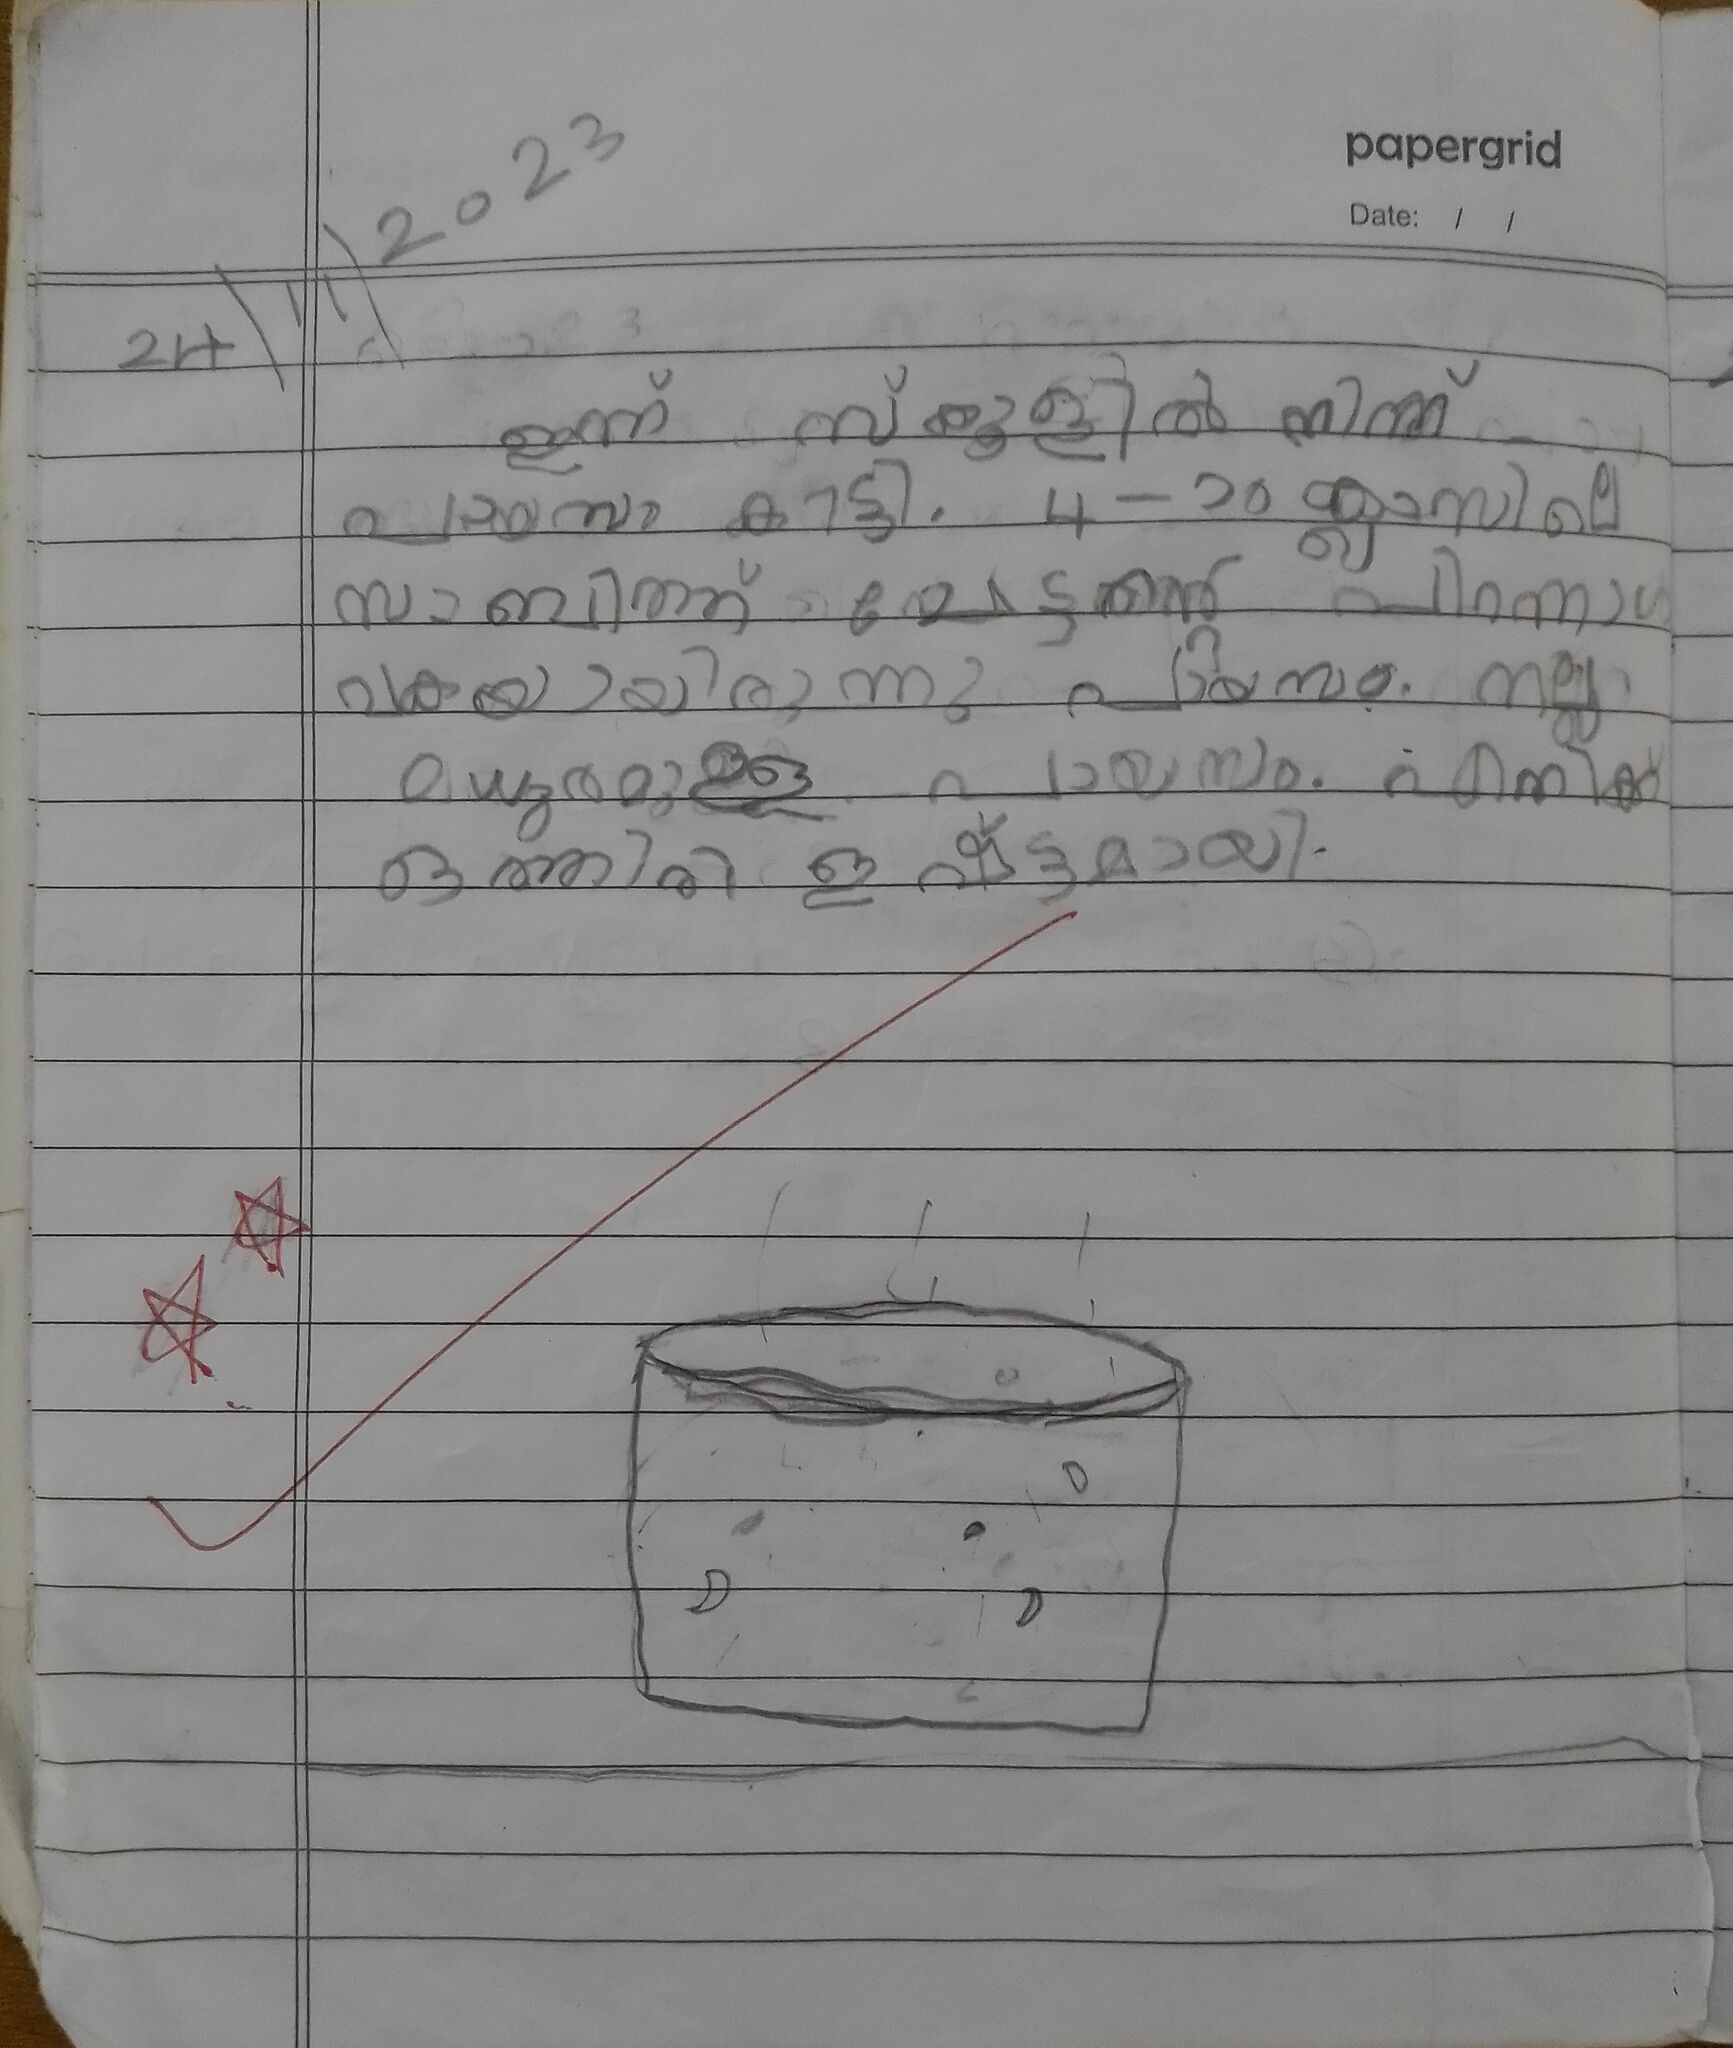 papergrid
Date: / /
24\11\2023
ഇന്ന് സ്കൂളിൽ നിന്ന്
പായസം കിട്ടി. 4-ാം ക്ലാസിലെ
ചേട്ടന്റെ പിറന്നാ
വകയായിരുന്നു പായസം. നല്ല
മധുരമുള്ള പായസം. എനിക്ക്
ഒത്തിരി ഇഷ്ട്ടമായി.